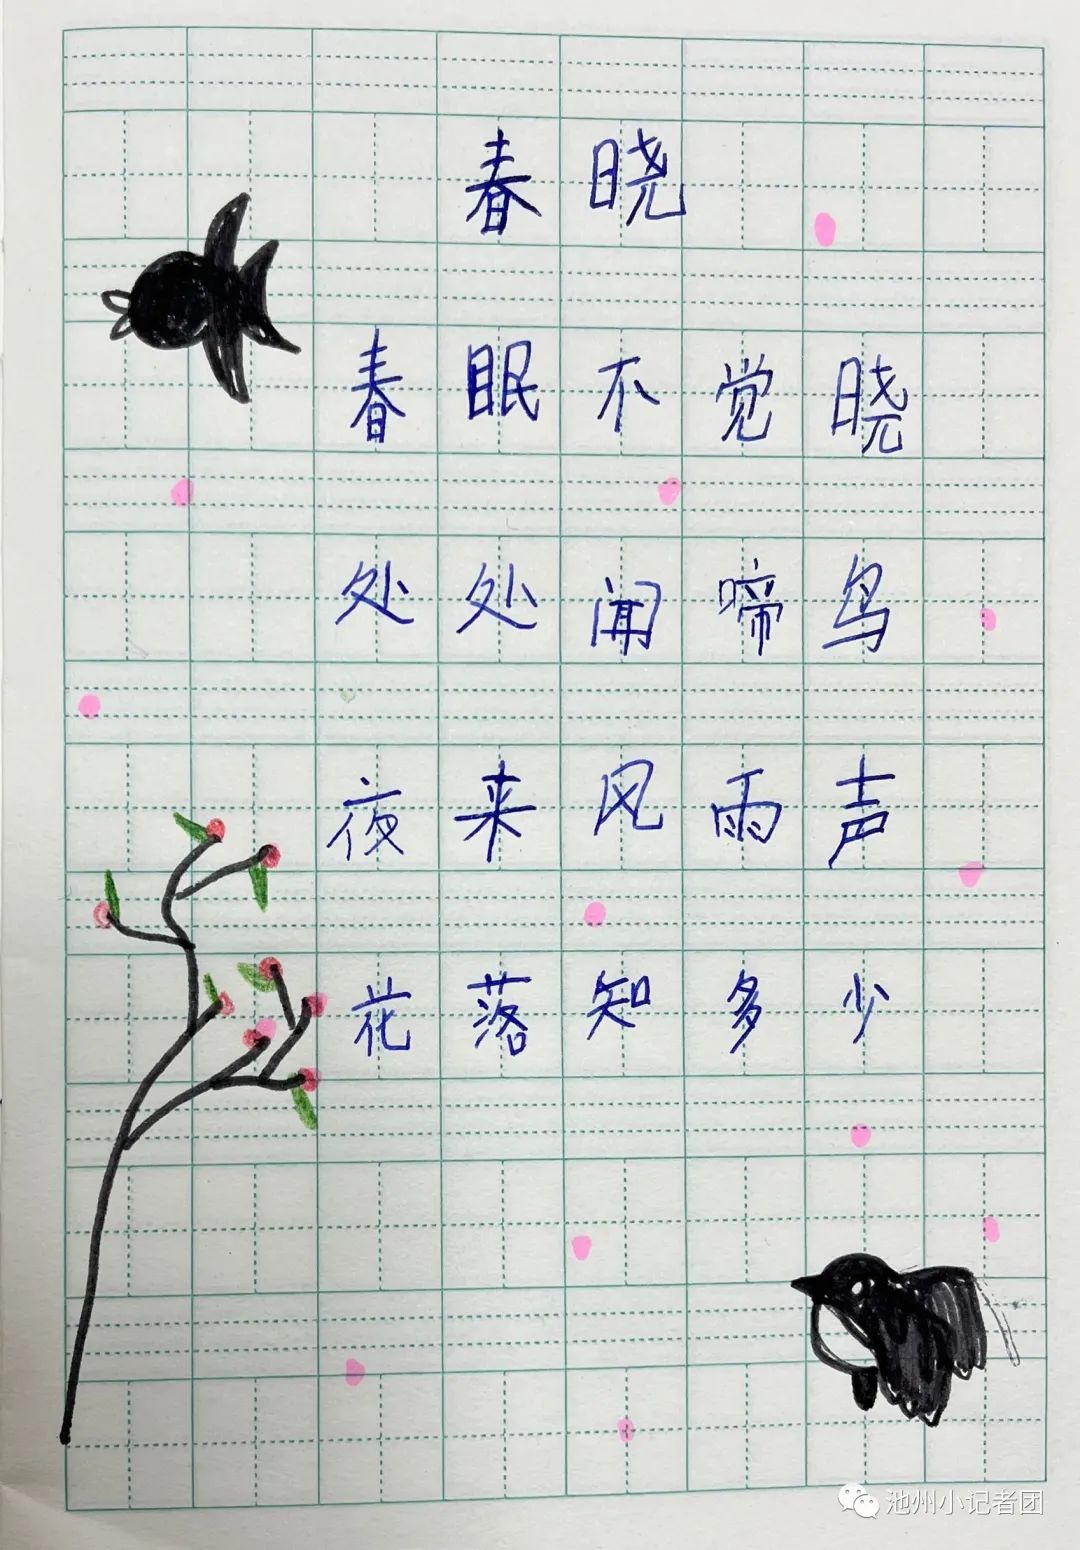 春晓
春眠不觉晓
处处闻啼鸟
夜来风雨声
花落知多少
池州小记者团